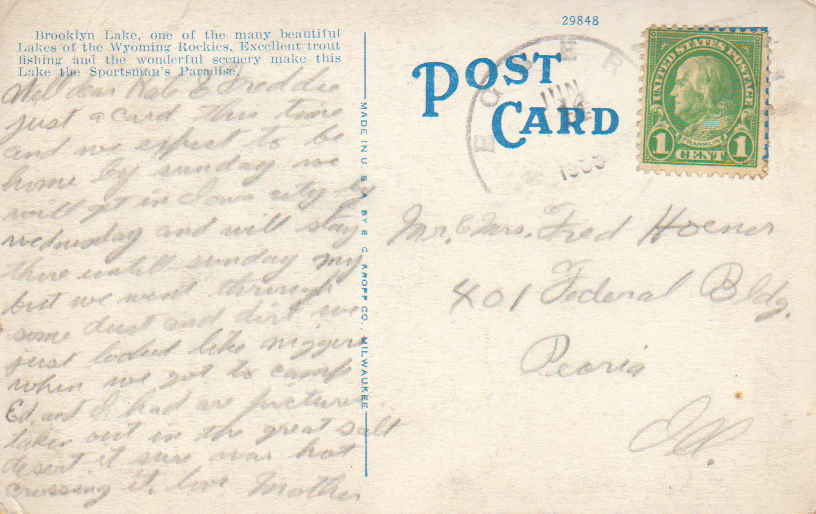 Brooklyn Lake, one of the many beautiful
Lakes of the Wyoming Rockies. Excellent trout
fishing and the wonderful scenery make this
Lake the Sportsman's Paradise.
29848
POST
CARD
JUN
1933
UNITED STATES POSTAGE
FRANKLIN
1 CENT 1
MADE IN U. S. A. BY E. C. KROPP CO., MILWAUKEE
My dear & Freddie
just a card this time
and we expect to be
home by sunday we
will get in Iowa city by
wednesday and will stay
there untill sunday my
but we went through
some dust and dirt we
just looked like niggers
when we got to camp
Ed. and I had are picture
taken out in the great salt
desert it sure was hot
crossing it. love Mother
Mr. & Mrs. Fred Hoener
401 Federal Bldg.
Peoria
Ill.